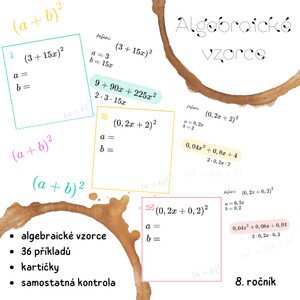 (a + b)²
Algebraické
vzorce
(3 + 15x)²
a =
b =
zadání:
(3 + 15x)²
a = 3
b = 15x
9 + 90x + 225x²
2 · 3 · 15x
(a + b)²
(a + b)²
(0,2x + 2)²
a =
b =
zadání:
(0,2x + 2)²
a = 0,2x
b = 2
0,04x² + 0,8x + 4
2 · 0,2x · 2
(a + b)²
(0,2x + 0,2)²
a =
b =
zadání:
(0,2x + 0,2)²
a = 0,2x
b = 0,2
0,04x² + 0,08x + 0,04
2 · 0,2x · 0,2
(a + b)²
• algebraické vzorce
• 36 příkladů
• kartičky
• samostatná kontrola
8. ročník